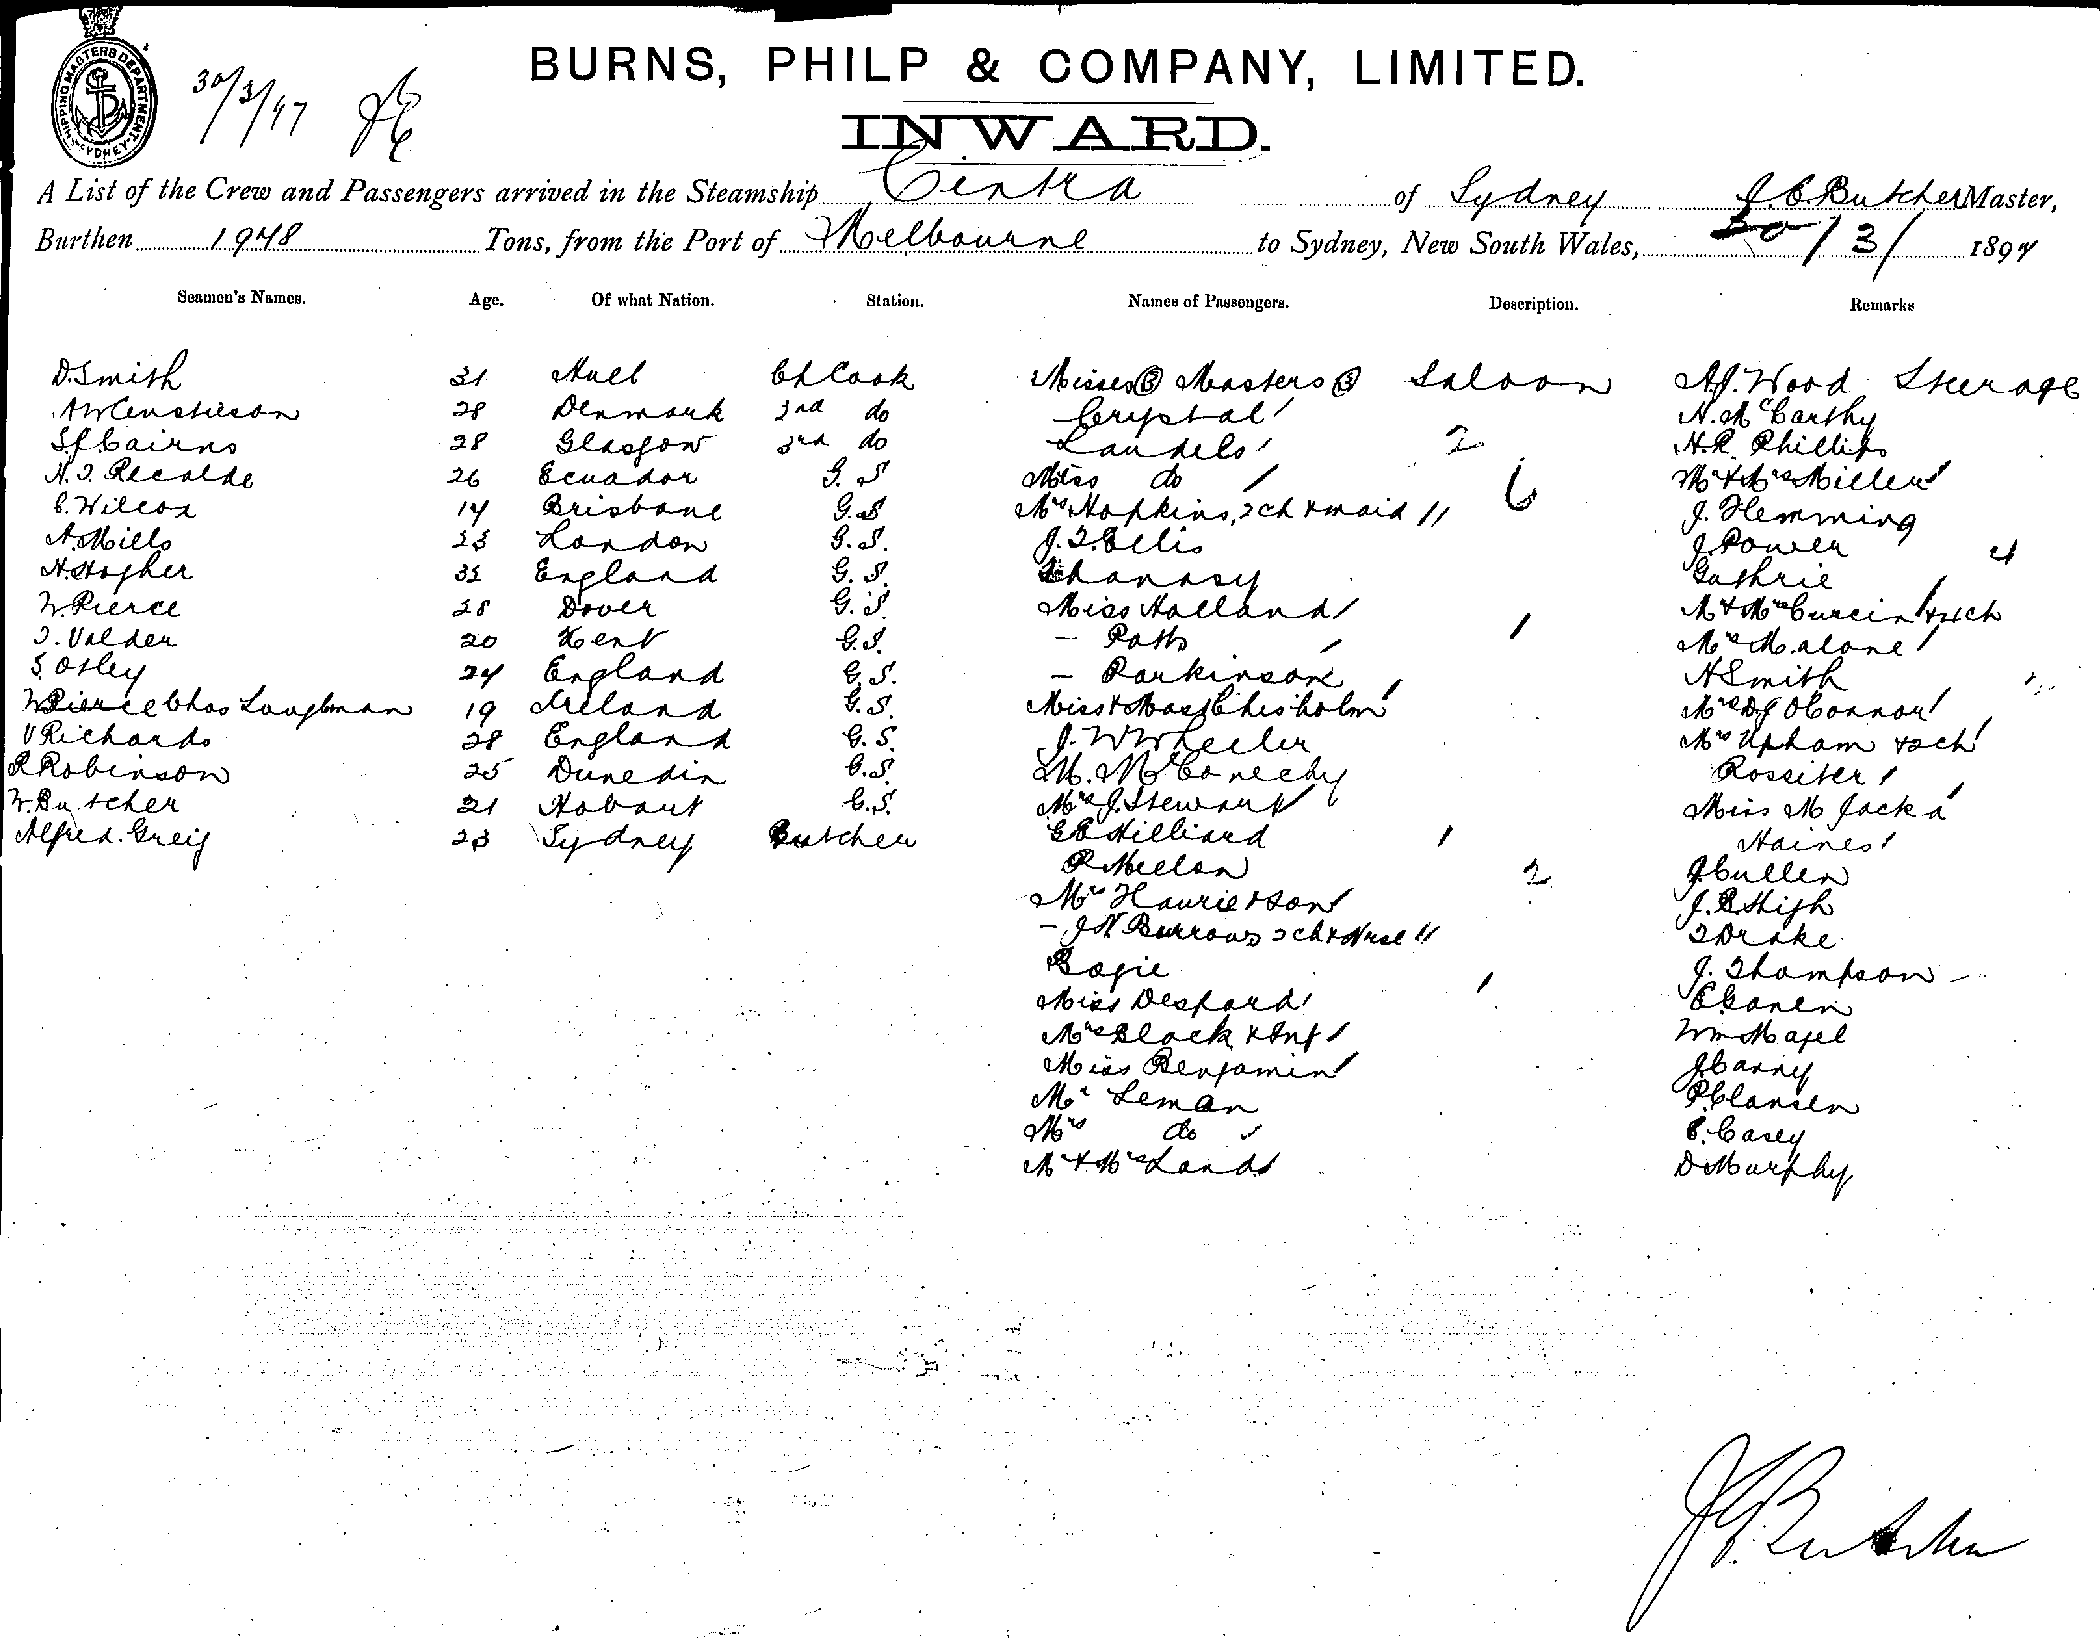 SHIPPING MASTERS DEPARTMENT SYDNEY
30/3/97
BURNS, PHILP & COMPANY, LIMITED.
INWARD.
A List of the Crew and Passengers arrived in the Steamship Cintra of Sydney J.C. Butcher Master,
Burthen 1948 Tons, from the Port of Melbourne to Sydney, New South Wales, 30/3/ 1897
Seamen's Names. Age. Of what Nation. Station. Names of Passengers. Description. Remarks
D. Smith 31 Hull Ch Cook Misses (3) Masters (3) Saloon A.J. Wood Steerage
28 Denmark 2nd do Crystal N. McCarthy
S.J. Cairns 28 Glasgow 3rd do Landels 2 H.R. Phillips
N.J. Recalde 26 Ecuador G.S Miss do Mr & Mrs Miller
C. Wilcox 14 Brisbane G.S Mrs Hopkins, 2 ch & maid 6 J. Flemming
A. Mills 23 London G.S. J.T. Ellis J. Power 4
England G.S. Shanasy Guthrie
W. Pierce 28 Dover G.S. Miss Holland
T. Valder 20 Kent G.S. - Potts 1 Mrs Malone
S. Otley 24 England G.S. - Parkinson H Smith
W Pierce Chas Laughman 19 Ireland G.S. Miss & Mast Chisholm Mrs D J O'Connor
V Richards 28 England G.S. J. W Wheeler Mrs Upham & 2 ch
R Robinson 25 Dunedin G.S. M. McConechy Rossiter
W. Butcher 21 Hobart G.S. Mrs J. Stewart Miss M Jacka
Alfred. Greig 23 Sydney Butcher E E Hilliard 1 Haines
R Mellon 2 J Cullen
Mrs Haurie & son J. R. High
- J N Burrows 2 ch & Nurse T Drake
Bogie J. Thompson
Miss Despard 1
Mrs Black & Inf Wm Magel
Miss Benjamin J Canny
Mr Leman P. Clansen
Mrs do C. Casey
Mr & Mrs Lands D Murphy
J C. Butcher